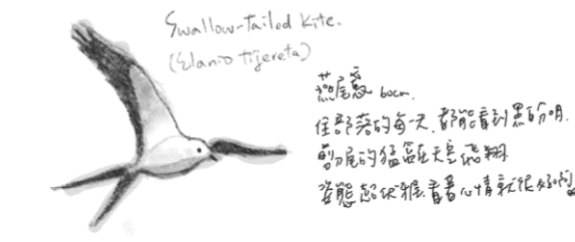 Swallow-Tailed Kite.
(Elanio Tijereta)
燕尾鳶 60cm.
住部落的每一天,都能看到黑白分明.
剪刀尾的猛禽在天空飛翔
姿態超優雅.看著心情就很好啊